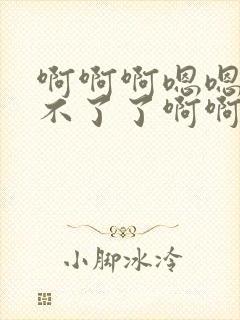 啊啊啊嗯嗯
不了了啊啊
小脚冰冷